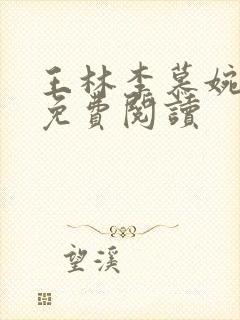 王林李慕婉
免費閱讀
望溪